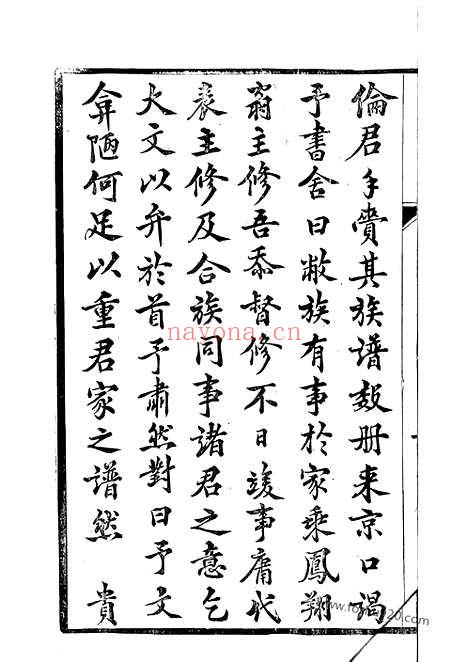 倫君手賷其族譜数册来京口謁
予書舍曰敝族有事於家乘鳳翔
翁主修吾忝督修不日竣事庸代
表主修及合族同事諸君之意乞
大文以弁於首予肅然對曰予文
弇陋何足以重君家之譜然 貴
nayona.cn